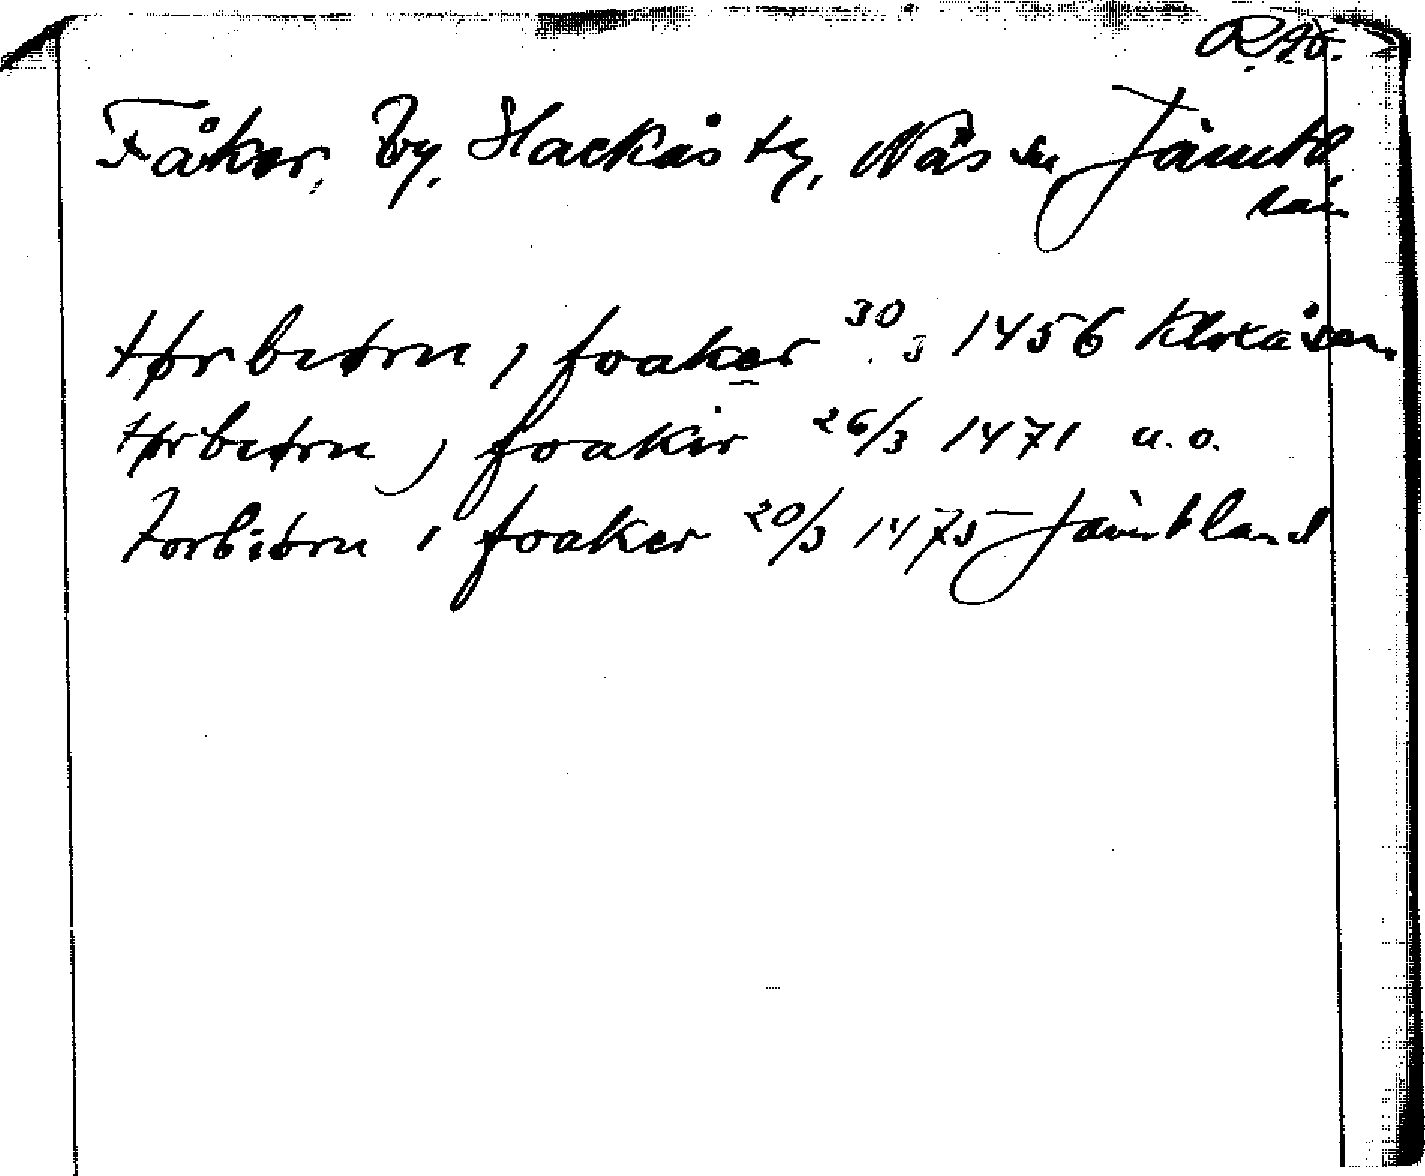 R.A.
Fåker, by, Hackås ty, Näs sn Jämtl
län
thørbiørn i foaker 30/3 1456 Kloxåsen
thørbiørn i foakir 26/3 1471 u.o.
Torbiørn i foaker 20/3 1475 Jämtland